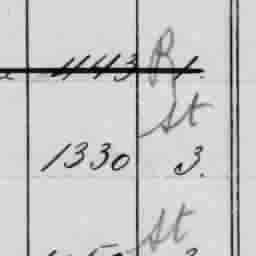 1143 R 1.
St
1330 3.
St